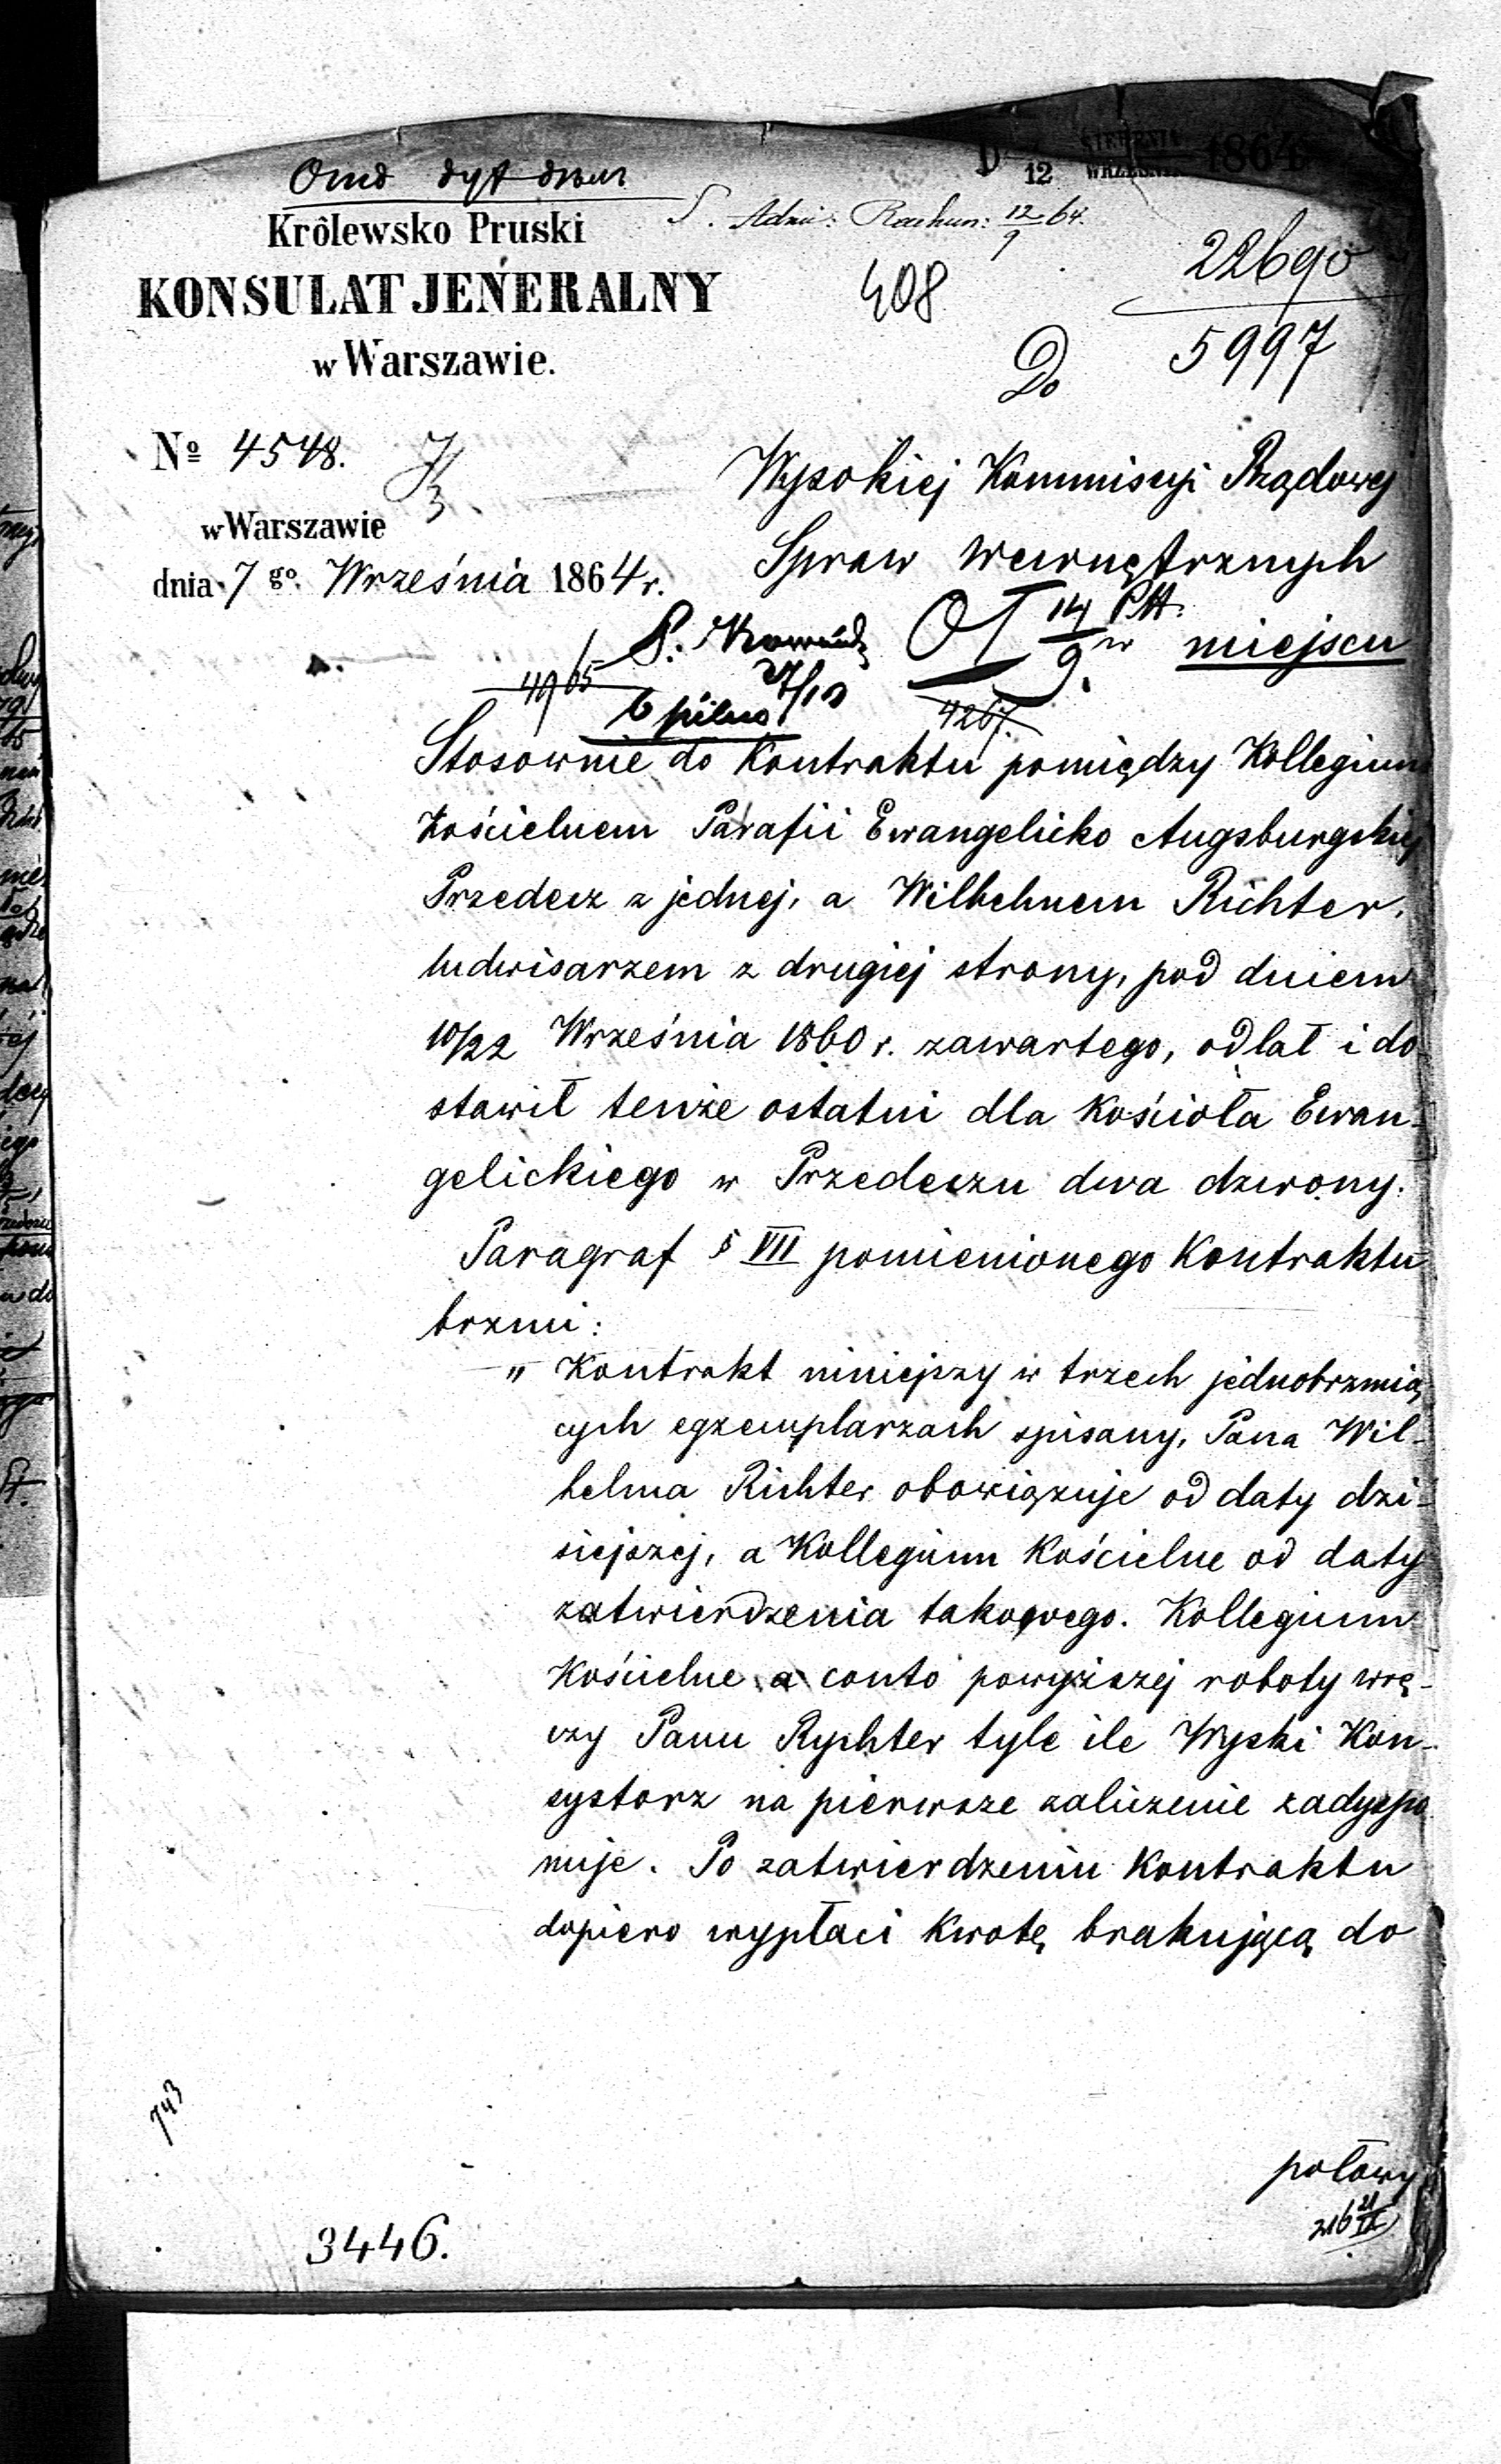 12 SIERPNIA WRZEŚNIA 1864
Królewsko Pruski
KONSULAT JENERALNY
w Warszawie.
S. Adm: Rachun: 12/9 64.
408
22690
5997
Do
No 4548.
w Warszawie
dnia 7 go. Września 1864 r.
Wysokiej Kommissyi Rządowej
Spraw Wewnętrznych
w miejscu
14/9
4965
27/10
b pilno
4267.
Stosownie do Kontraktu pomiędzy Kollegium
Kościelnem Parafii Ewangelicko Augsburgskiej
Przedecz z jednej, a Wilhelmem Richter,
ludwisarzem z drugiej strony, pod dniem
10/22 Września 1860 r. zawartego, odlał i do-
stawił tenże ostatni dla Kościoła Ewan-
gelickiego w Przedeczu dwa dzwony.
Paragraf § VII pomienionego Kontraktu
brzmi:
" Kontrakt niniejszy w trzech jednobrzmią
cych egzemplarzach spisany, Pana Wil-
helma Richter obowiązuje od daty dzi-
siejszej, a Kollegium Kościelne od daty
zatwierdzenia takowego. Kollegium
Kościelne a conto powyższej roboty wrę-
czy Panu Rychter tyle ile Wyski Kon-
systorz na pierwsze zaliczenie zadyspo
nuje. Po zatwierdzeniu Kontraktu
dopiero wypłaci Kwotę brakującą do
połowy
743
3446.